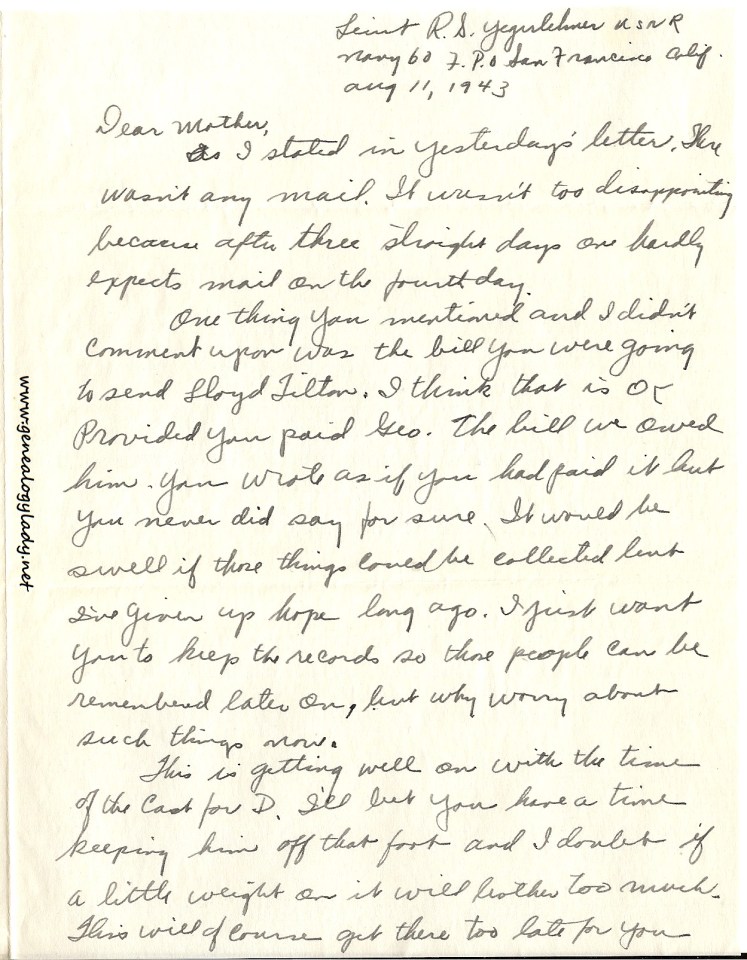 Lieut R. S. Yegerlehner USNR
Navy 60 F.P.O San Francisco Calif.
Aug 11, 1943
Dear Mother,
As I stated in yesterday's letter. There
wasn't any mail. It wasn't too disappointing
because after three straight days one hardly
expects mail on the fourth day.
One thing you mentioned and I didn't
comment upon was the bill you were going
to send Lloyd Tilton. I think that is OK
Provided you paid Geo. The bill we owed
him. You wrote as if you had paid it but
you never did say for sure. It would be
swell if those things could be collected but
I've given up hope long ago. I just want
you to keep the records so those people can be
remembered later on, but why worry about
such things now.
This is getting well on with the time
of the Cast for D. I'll bet you have a time
keeping him off that foot and I doubt if
a little weight on it will bother too much.
This will of course get there too late for you
www.genealogylady.net